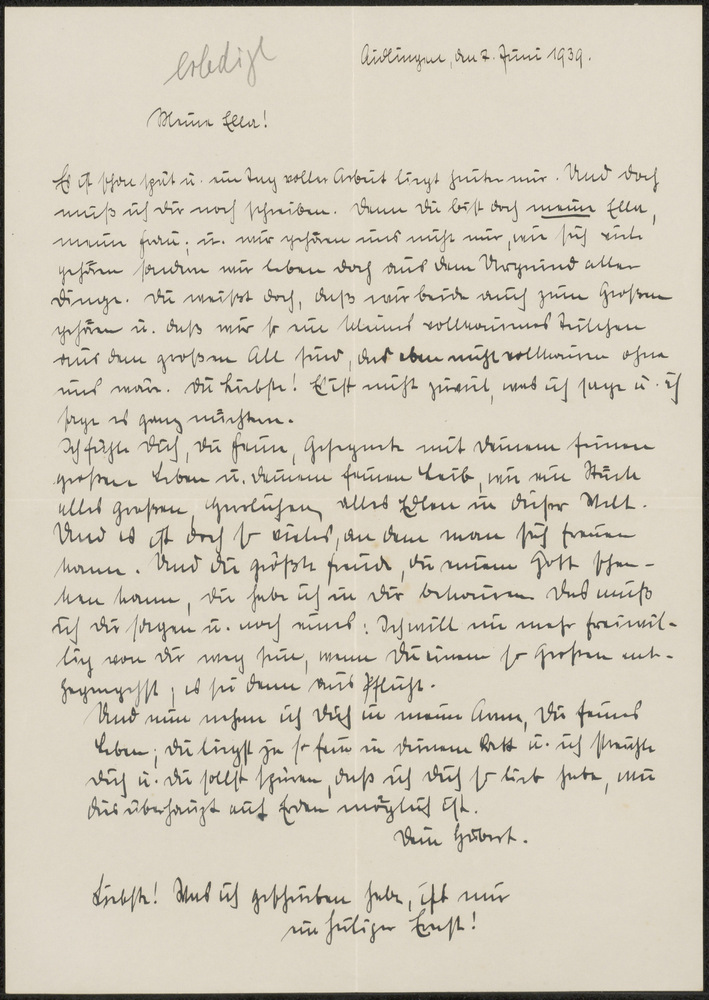 erledigt
Aidlingen, den 7. Juni 1939.
Meine Ella!
Es ist schon spät u. ein Tag voller Arbeit liegt hinter mir. Und doch
muß ich dir noch schreiben. Denn Du bist doch meine Ella,
meine Frau; u. wir gehören uns nicht nur, wie sich viele
gehören sondern wir leben doch aus dem Urgrund aller
Dinge. Du weißt doch, daß wir beide auch zum Großen
gehören u. daß wir so ein kleines vollkommenes Teilchen
aus dem großen All sind, das eben nicht vollkommen ohne
uns wäre. Du Liebste! Es ist nicht zuviel, was ich sage u. ich
sage es ganz nüchtern.
Ich fühle Dich, Du Feine, Gesegnete mit Deinem feinen
großen Leben u. Deinem feinen Leib, wie ein Stück
alles großen, herrlichen, alles Edlen in dieser Welt.
Und es ist doch so vieles, an dem man sich freuen
kann. Und die größte Freude, die einem Gott schen-
ken kann, die habe ich in Dir bekommen. Das muß
ich Dir sagen u. noch eines: Ich will nie mehr freiwil-
lig von Dir weg sein, wenn Du einem so Großen ent-
gegengehst, es sei denn aus Pflicht.
Und nun nehme ich Dich in meine Arme, Du feines
Leben; Du liegst ja so fein in Deinem Bett u. ich streichle
Dich u. Du sollst spüren, daß ich Dich so lieb habe, wie
dies überhaupt auf Erden möglich ist.
Dein Hubert.
Liebste! Was ich geschrieben habe, ist mir
ein heiliger Ernst!